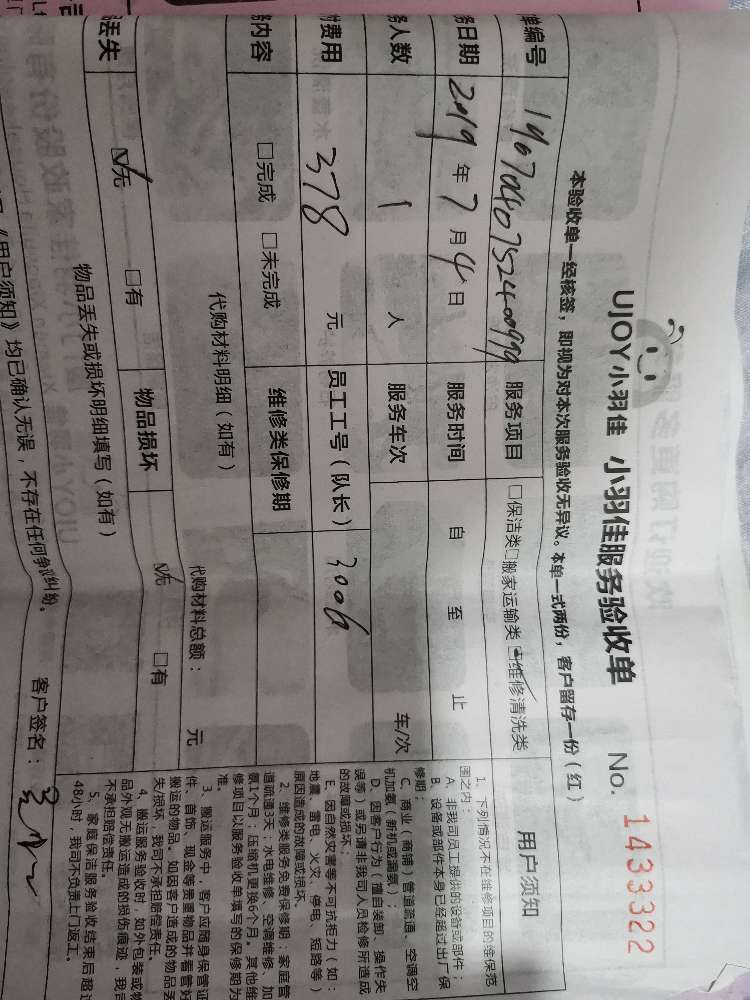 UJOY小羽佳 小羽佳服务验收单 No. 1433322
本验收单一经核签，即视为对本次服务验收无异议。本单一式两份，客户留存一份（红）
单编号 服务项目 □保洁类□搬家运输类☑维修清洗类
务日期 2019 年 7 月 4 日 服务时间 自 至 止
务人数 1 人 服务车次 车/次
费用 378 元 员工工号（队长） 3006
务内容 □完成 □未完成 维修类保修期
代购材料明细（如有） 代购材料总额： 元
丢失 ☑无 □有 物品损坏 ☑无 □有
物品丢失或损坏明细填写（如有）
《用户须知》均已确认无误，不存在任何争议纠纷。
客户签名：
用户须知
1、下列情况不在维修项目的维保范
围之内：
A、非我司员工提供的设备或部件；
B、设备或部件本身已经超过出厂保
修期；
C、商业（商铺）管道疏通、空调空
机加氨（新机或漏氨）；
D、因客户行为（擅自装卸、操作失
误等）或另请非我司人员检修所造成
的故障或损坏；
E、因自然灾害等不可抗拒力（如：
地震、雷电、火灾、停电、短路等）
原因造成的故障或损坏。
2、维修类服务免费保修期：家庭管
道疏通3天；水电维修、空调维修、加
氨1个月；压缩机更换6个月。其他维
修项目以服务验收单填写的保修期为
准。
3、搬运服务中，客户应随身保管证
件、首饰、现金等贵重物品并看管好
搬运的物品。如因客户造成的物品丢
失/损坏，我司不承担赔偿责任。
4、搬运服务验收时，如外包装或物
品外观无搬运造成的损伤痕迹，我司
不承担赔偿责任。
5、家庭保洁服务验收结束后超过
48小时，我司不负责上门返工。